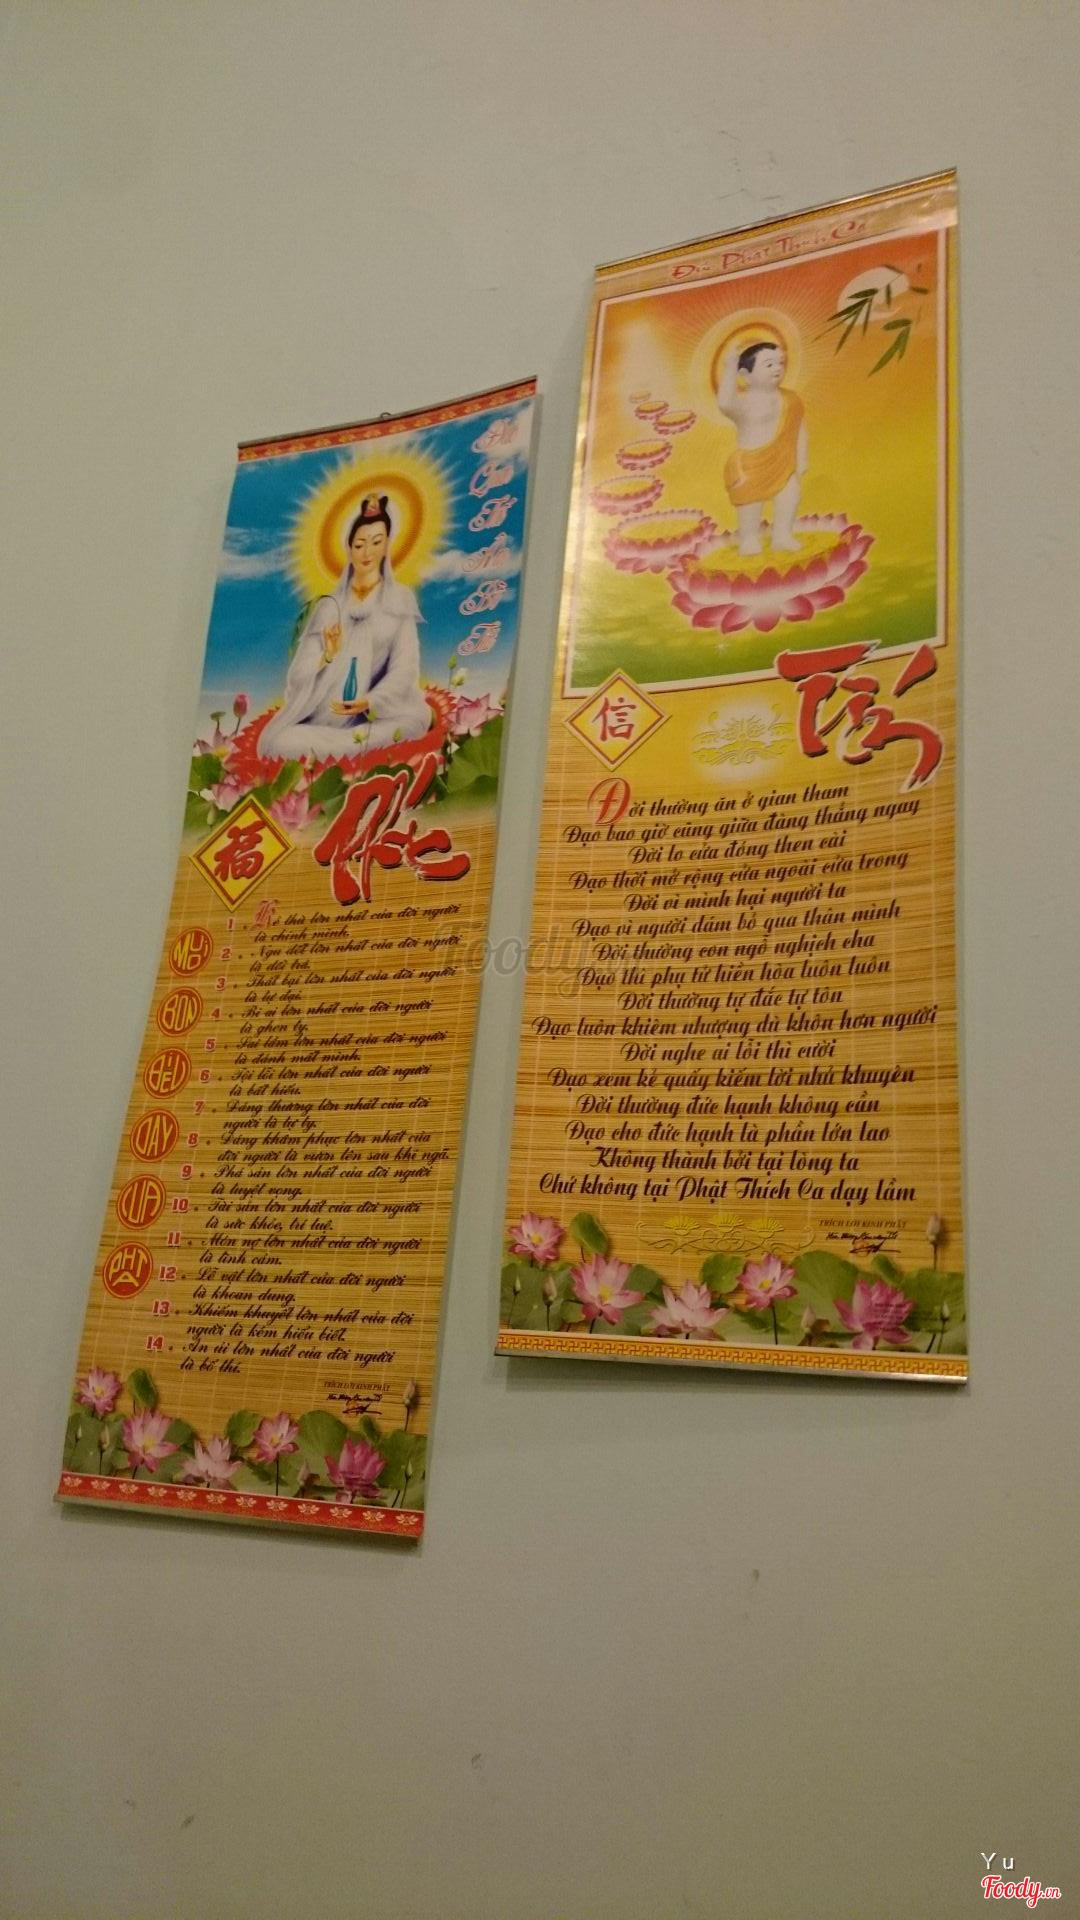 Đức
Quan
Thế
Âm
Bồ
Tát
福
Phúc
MƯỜI
BỐN
ĐIỀU
DẠY
CỦA
PHẬT
1. Kẻ thù lớn nhất của đời người
là chính mình.
2. Ngu dốt lớn nhất của đời người
là dối trá.
3. Thất bại lớn nhất của đời người
là tự đại.
4. Bi ai lớn nhất của đời người
là ghen tỵ.
5. Sai lầm lớn nhất của đời người
là đánh mất mình.
6. Tội lỗi lớn nhất của đời người
là bất hiếu.
7. Đáng thương lớn nhất của đời
người là tự ty.
8. Đáng khâm phục lớn nhất của
đời người là vươn lên sau khi ngã.
9. Phá sản lớn nhất của đời người
là tuyệt vọng.
10. Tài sản lớn nhất của đời người
là sức khỏe, trí tuệ.
11. Món nợ lớn nhất của đời người
là tình cảm.
12. Lễ vật lớn nhất của đời người
là khoan dung.
13. Khiếm khuyết lớn nhất của đời
người là kém hiểu biết.
14. An ủi lớn nhất của đời người
là bố thí.
TRÍCH LỜI KINH PHẬT
Đức Phật Thích Ca
信
Tín
Đời thường ăn ở gian tham
Đạo bao giờ cũng giữa đàng thẳng ngay
Đời lo cửa đóng then cài
Đạo thời mở rộng cửa ngoài cửa trong
Đời vì mình hại người ta
Đạo vì người dám bỏ qua thân mình
Đời thường con ngỗ nghịch cha
Đạo thì phụ tử hiền hòa luôn luôn
Đời thường tự đắc tự tôn
Đạo luôn khiêm nhượng dù khôn hơn người
Đời nghe ai lỗi thì cười
Đạo xem kẻ quấy kiếm lời nhủ khuyên
Đời thường đức hạnh không cần
Đạo cho đức hạnh là phần lớn lao
Không thành bởi tại lòng ta
Chứ không tại Phật Thích Ca dạy lầm
TRÍCH LỜI KINH PHẬT
Foody
Yu
Foody.vn